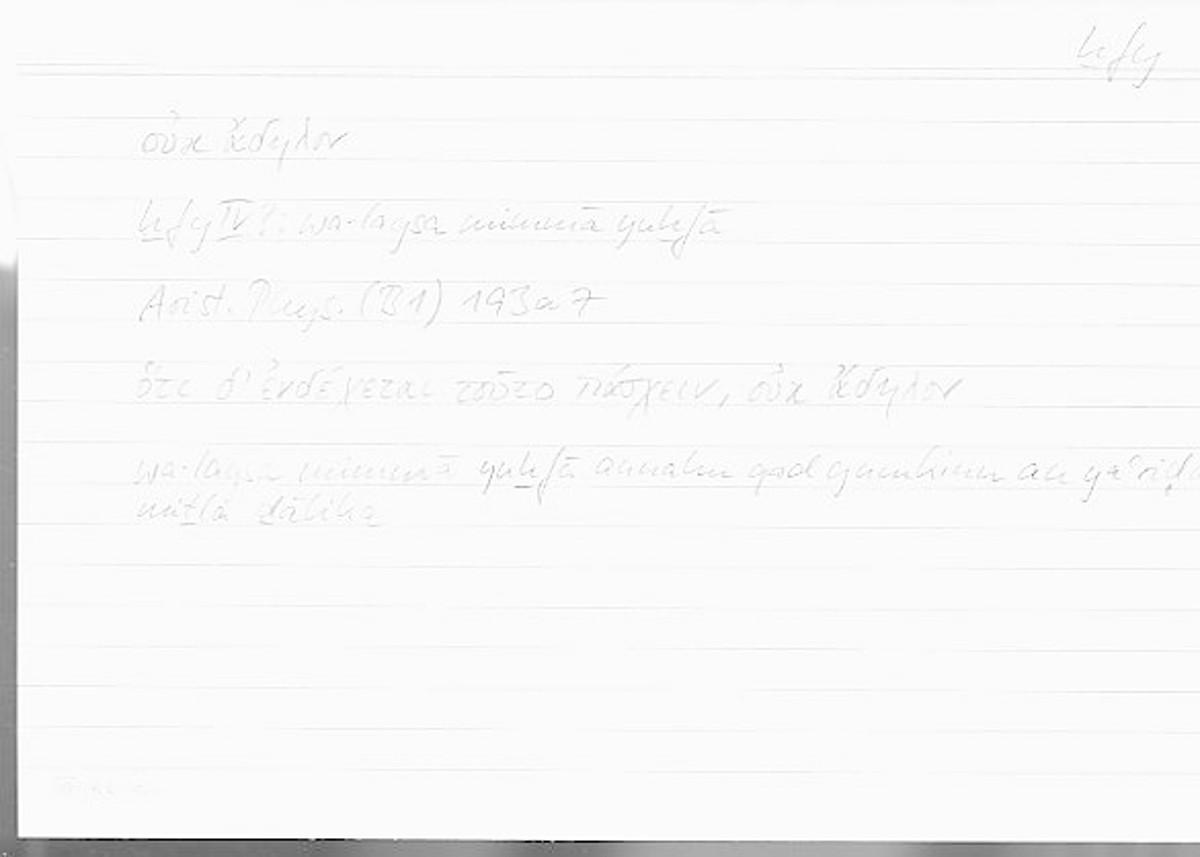 ḫfy
οὐκ ἄδηλον
ḫfy IV?: wa-laysa mimmā yuḫfā
Arist. Phys. (B1) 193a7
ὅτι δ' ἐνδέχεται τοῦτο πάσχειν, οὐκ ἄδηλον
wa-laysa mimmā yuḫfā annahu qad yumkinu an
miṯlu ḏālika